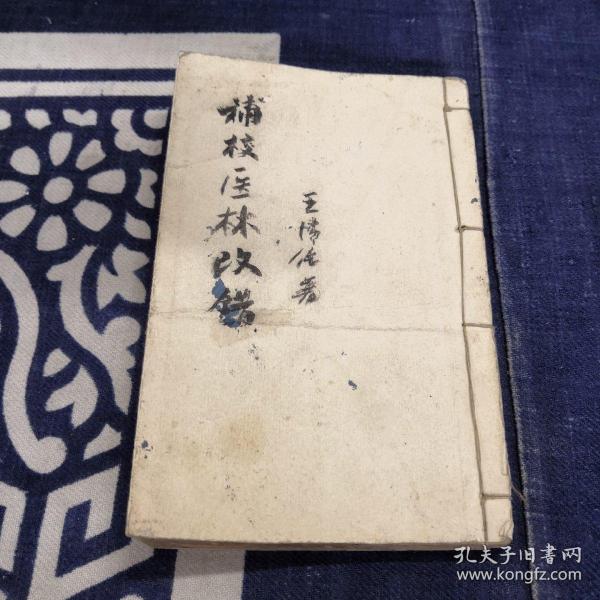 补校医林改错
王清任著
孔夫子旧書网
www.kongfz.com